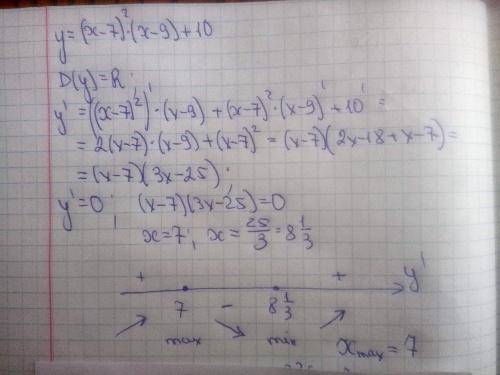 y=(x-7)²·(x-9)+10
D(y)=R.
y'=((x-7)²)'·(x-9)+(x-7)²·(x-9)'+10'=
=2(x-7)·(x-9)+(x-7)²=(x-7)(2x-18+x-7)=
=(x-7)(3x-25).
y'=0; (x-7)(3x-25)=0
x=7; x=25/3=8 1/3
+ + y'
7 - 8 1/3
max min x_max=7